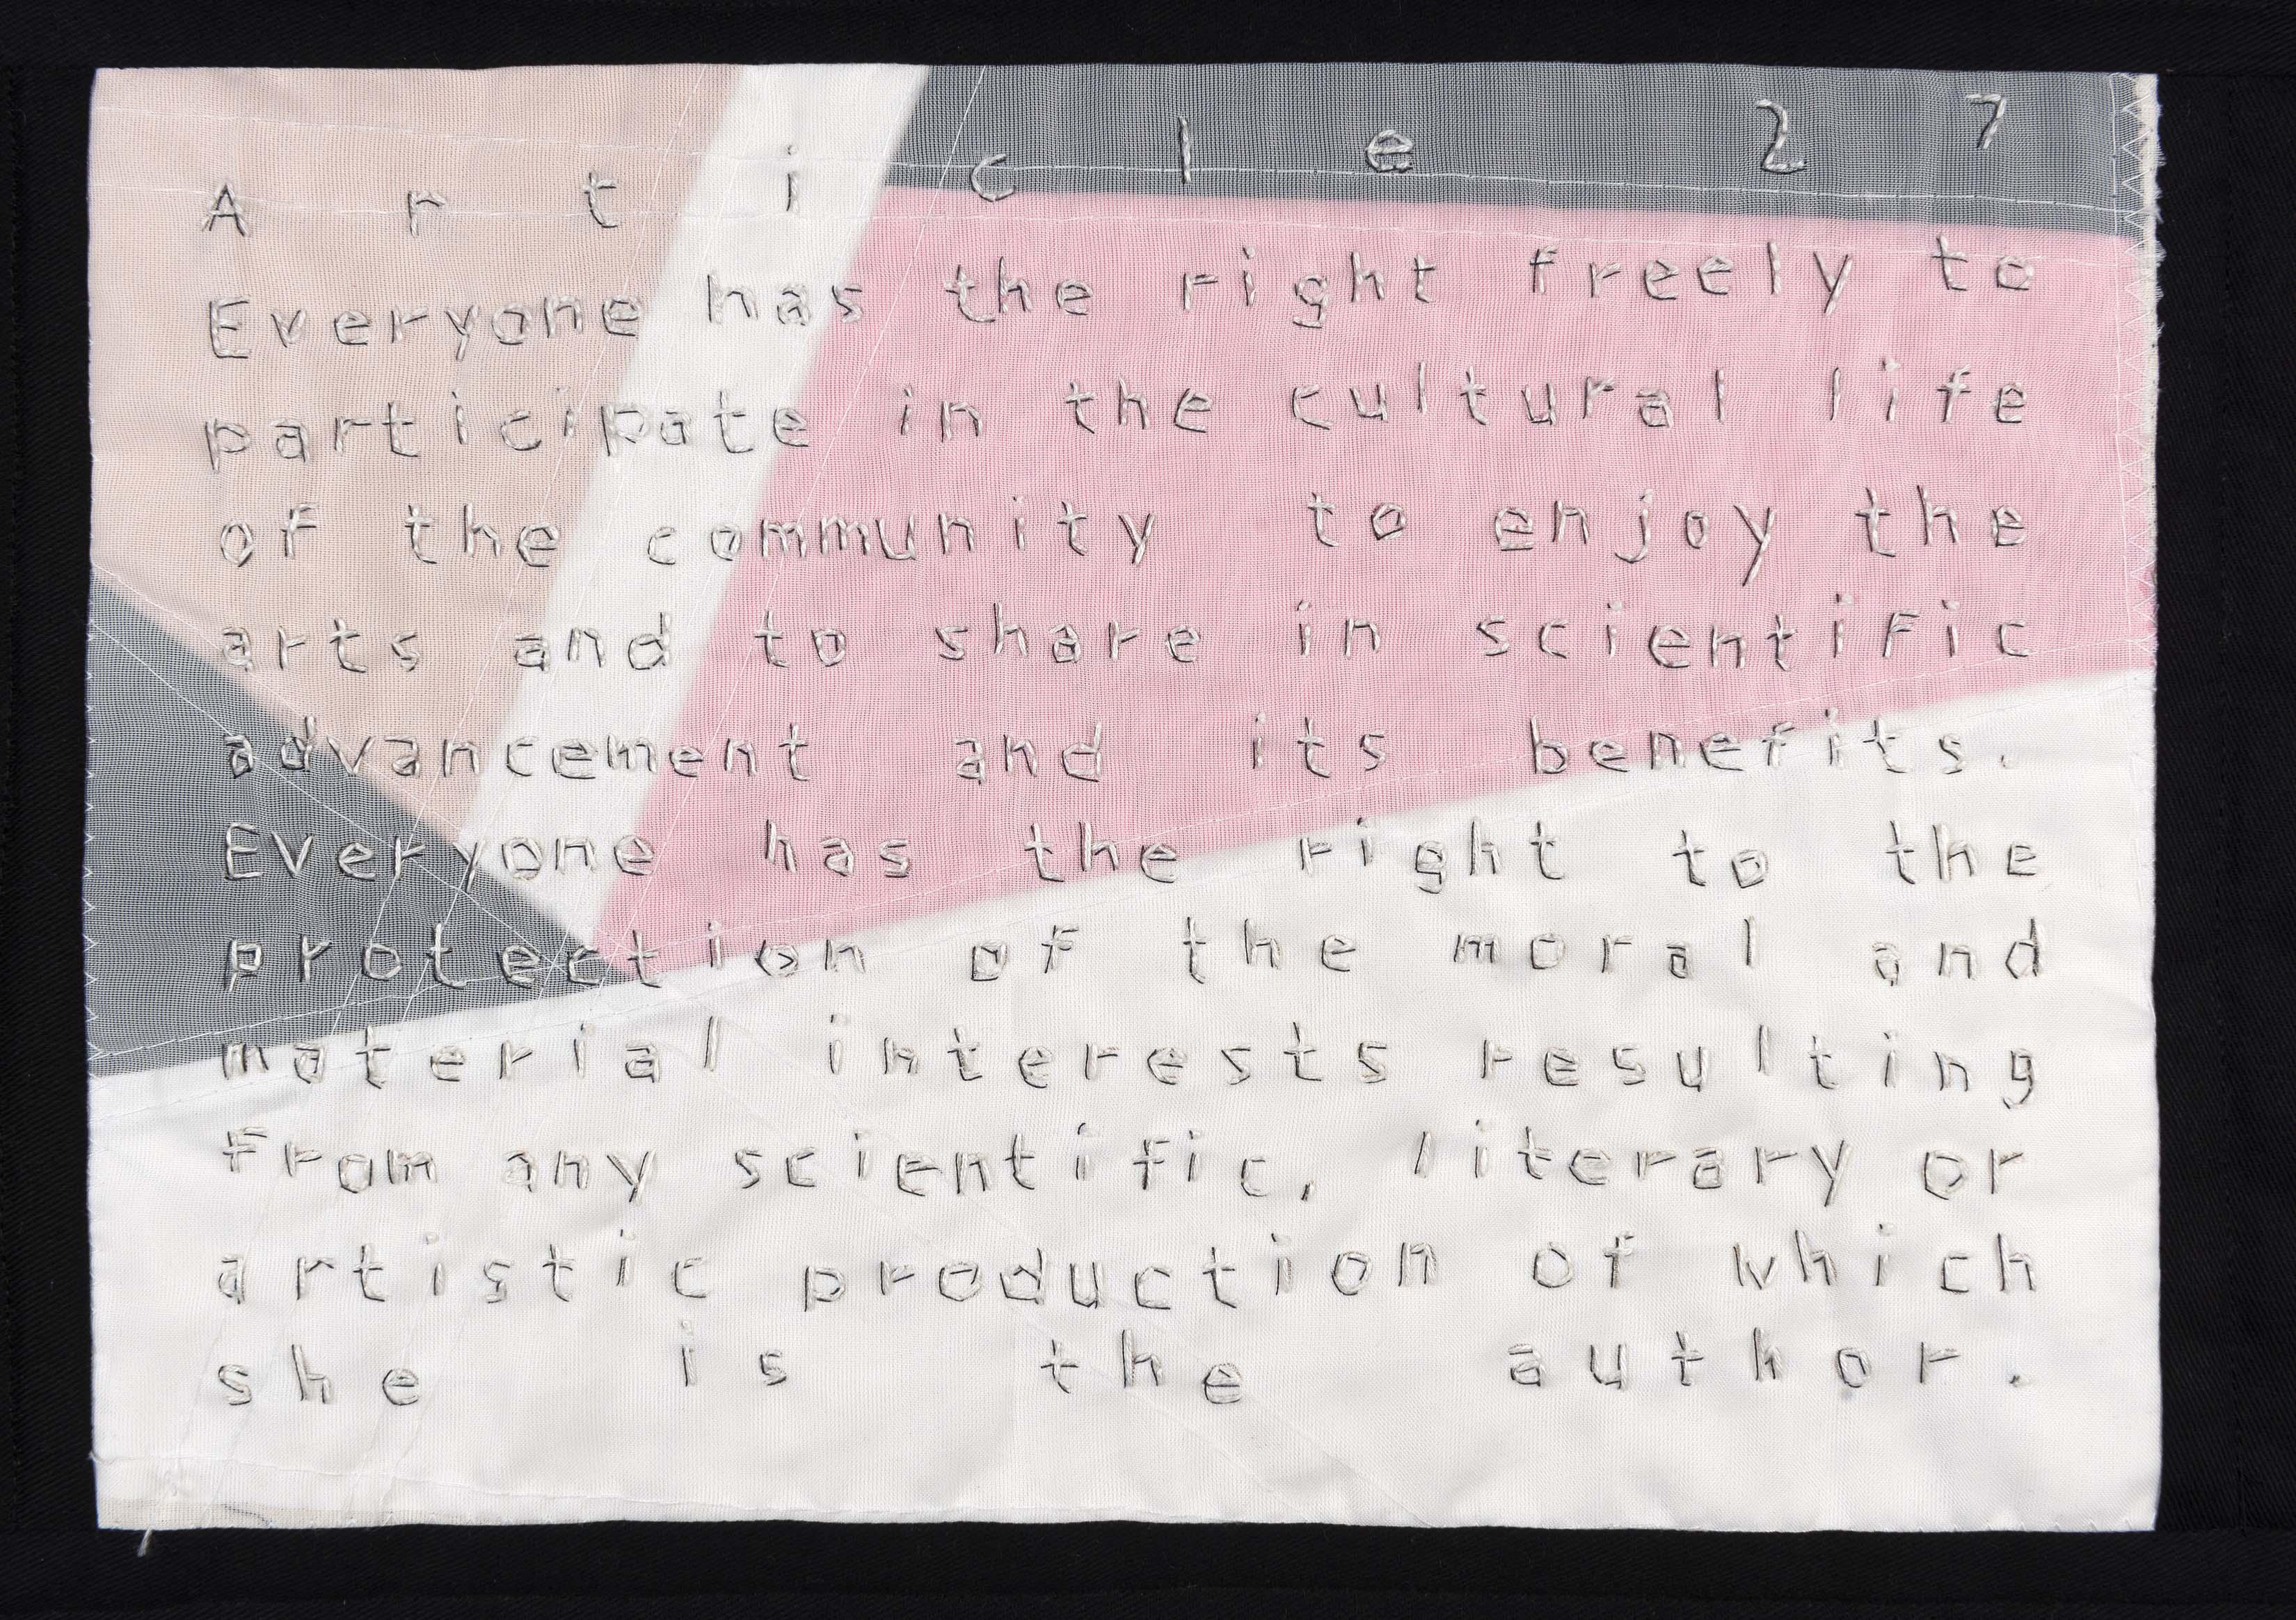 Article 27
Everyone has the right freely to
participate in the cultural life
of the community to enjoy the
arts and to share in scientific
advancement and its benefits.
Everyone has the right to the
protection of the moral and
material interests resulting
from any scientific, literary or
artistic production of which
she is the author.